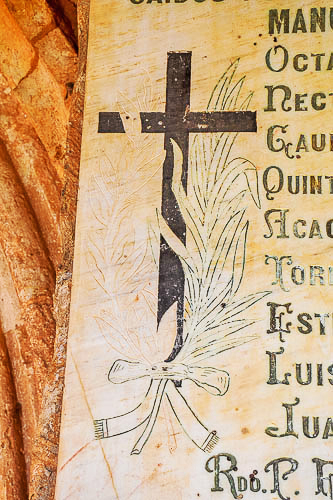 CAIDOS
MANU
OCTA
NECT
GAU
QUINT
ACAC
TORI
EST
LUIS
JUA
RDO. P.